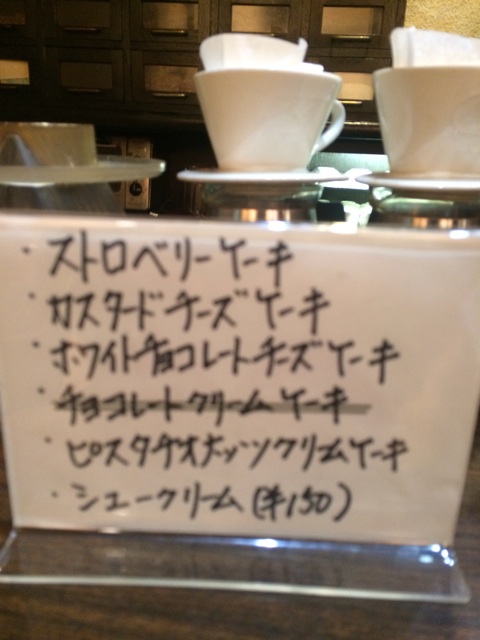 ・ストロベリーケーキ
・カスタードチーズケーキ
・ホワイトチョコレートチーズケーキ
・チョコレートクリームケーキ
・ピスタチオナッツクリームケーキ
・シュークリーム(¥150)